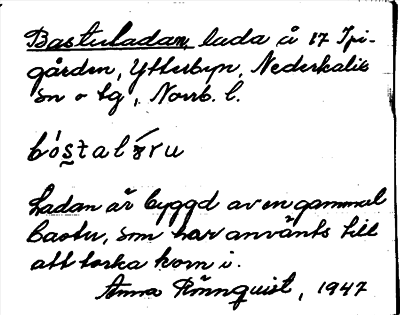 Bastuladan, lada å 17 Ipi-
gården, Ytterbyn, Nederkalix
sn o tg, Norrb. l.
bòstalɜru
Ladan är byggd av en gammal
bastu, som har använts till
att torka korn i.
Anna Rönnquist, 1947